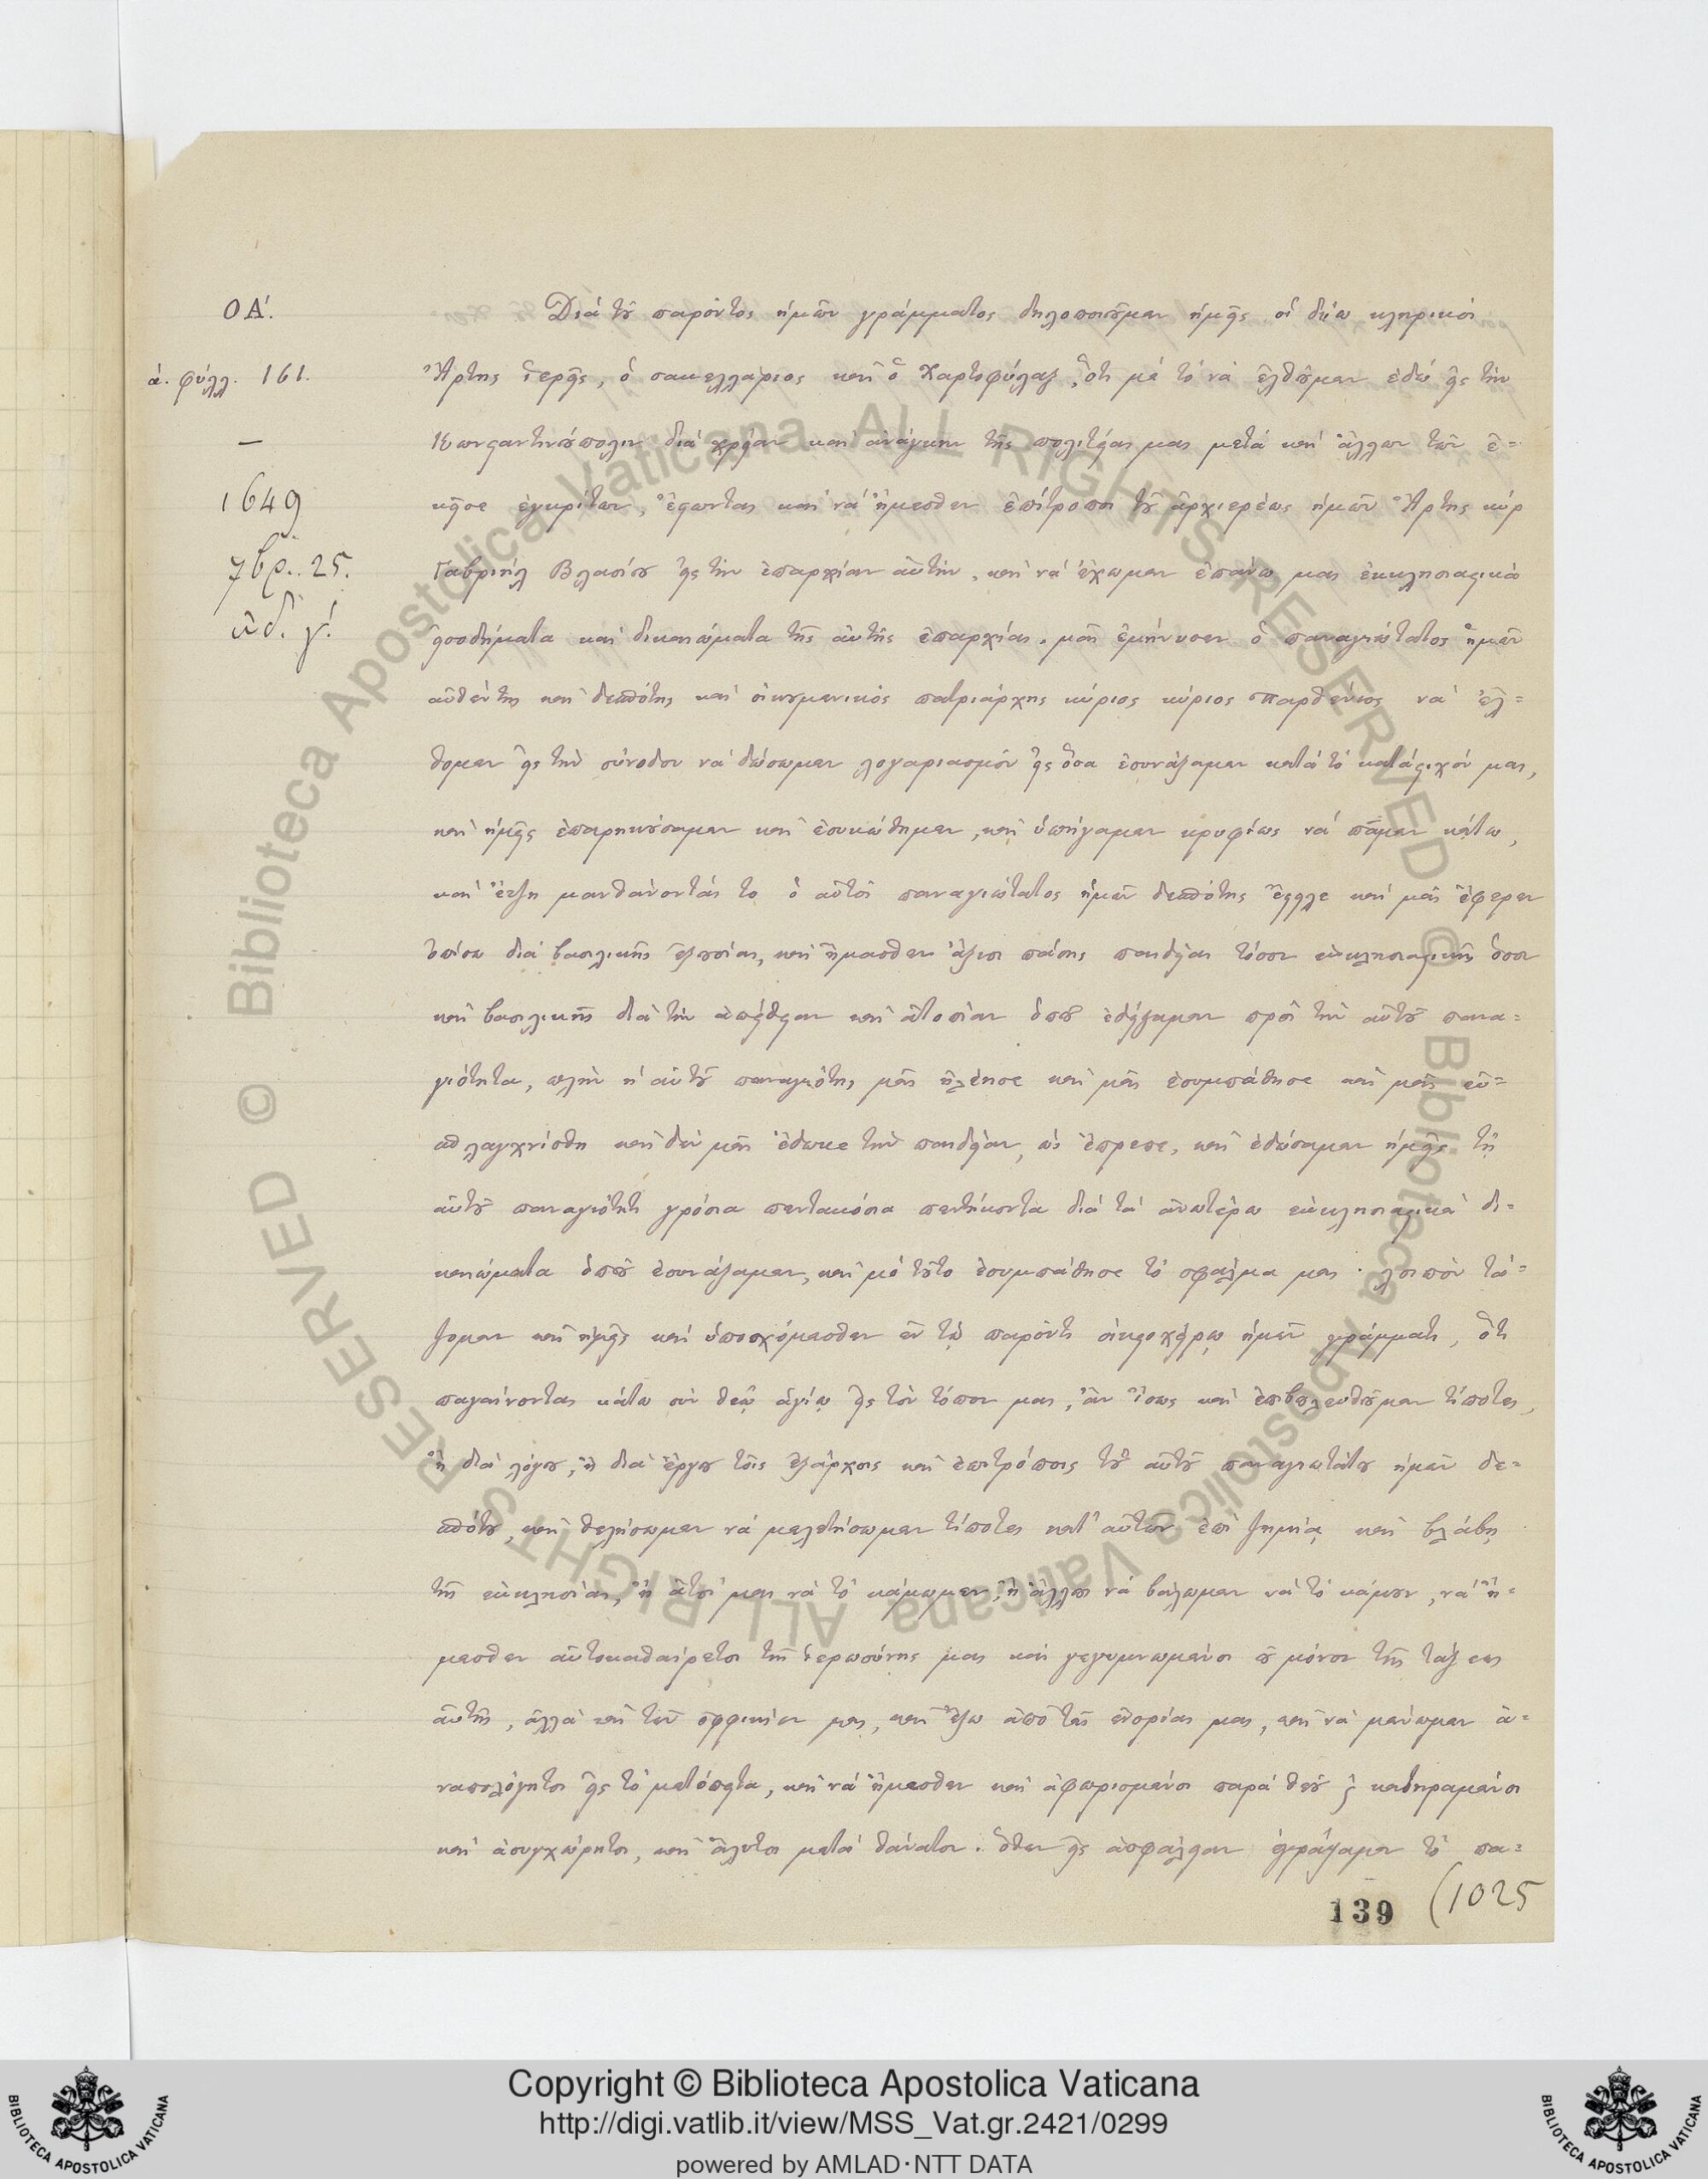 ΟΑ΄.
ά. φύλλ. 161.
—
1649
7βρ. 25.
ἰνδ. γ΄.
Διά τοῦ παρόντος ἡμῶν γράμματος δηλοποιοῦμεν ἡμεῖς οἱ δύω κληρικοί
Ἄρτης ἱερεῖς, ὁ σακελλάριος καὶ ὁ Χαρτοφύλαξ, ὅτι μέ τό νά ἔλθουμεν ἐδώ εἰς τήν
Κωνσαντινούπολιν διά χρείαν καί ἀνάγκην τῆς πολιτείας μας μετά καί ἄλλων τῶν ἐ=
κεῖσε ἐγκρίτων, ἔσωντας καί νά ἤμεσθεν ἐπίτροποι τοῦ ἀρχιερέως ἡμῶν Ἄρτης κύρ
Γαβριήλ Βλασίου εἰς τήν ἐπαρχίαν αὐτήν, καί νά ἔχωμεν ἐπάνω μας ἐκκλησιαστικά
εἰσοδήματα καί δικαιώματα τῆς αὐτῆς ἐπαρχίας, μᾶς ἐμήνυσεν ὁ παναγιώτατος ἡμῶν
αὐθέντης καί δεσπότης καί οἰκουμενικός πατριάρχης κύριος κύριος Παρθένιος νά ἔλ=
θομεν εἰς τήν σύνοδον νά δώσωμεν λογαριασμόν εἰς ὅσα ἐσυνάξαμεν κατά τό κατάστιχόν μας,
καί ἡμεῖς ἐπαρηκούσαμεν καί ἐσυκώθημεν, καί ὑπήγαμεν κρυφίως νά πᾶμεν κάτω,
καί ἔτζη μανθάνοντάς το ὁ αὐτός παναγιώτατος ἡμῶν δεσπότης ἔστειλε καί μᾶς ἔφερεν
ὀπίσω διά βασιλικῆς ἐξουσίας, καί ἤμασθεν ἄξιοι πάσης παιδείας τόσον ἐκκλησιαστικῆς ὅσον
καί βασιλικῆς διά τήν ἀπείθειαν καί ἀτοπίαν ὁποῦ ἐδείξαμεν πρός τήν αὐτοῦ πανα=
γιότητα, πλήν ἡ αὐτοῦ παναγιότης μᾶς ἠλέησε καί μᾶς ἐσυμπάθησε καί μᾶς εὐ=
σπλαγχνίσθη καί δέν μᾶς ἔδωκε τήν παιδείαν, ὡς ἔπρεπε, καί ἐδώσαμεν ἡμεῖς τῇ
αὐτοῦ παναγιότητι γρόσια πεντακόσια πενήκοντα διά τά ἀνωτέρω ἐκκλησιαστικά δι=
καιώματα ὁποῦ ἐσυνάξαμεν, καί μέ τοῦτο ἐσυμπάθησε τό σφάλμα μας · λοιπόν τά=
ζομεν καί ἡμεῖς καί ὑποσχόμασθεν ἐν τῷ παρόντι οἰκειοχείρῳ ἡμῶν γράμματι, ὅτι
παγαίνοντας κάτω σύν θεῷ ἁγίῳ εἰς τόν τόπον μας, ἄν ἴσως καί ἐπιβουλευθοῦμεν τίποτες,
ἤ διά λόγου, ἤ διά ἔργου τοῖς ἐξάρχοις καί ἐπιτρόποις τοῦ αὐτοῦ παναγιωτάτου ἡμῶν δε=
σπότου, καί θελήσωμεν νά μελετήσωμεν τίποτες κατ' αὐτῶν ἐπί ζημίᾳ καί βλάβῃ
τῆς ἐκκλησίας, ἤ ἀτοί μας νά τό κάμωμεν, ἤ ἄλλοι νά βάλωμεν νά τό κάμουν, νά ἤ=
μεσθεν αὐτοκαθαίρετοι τῆς ἱερωσύνης μας καί γεγυμνωμένοι οὐ μόνον τῆς τάξεως
αὐτῆς, ἀλλά καί τῶν ὀφφικίων μας, καί ἔξω ἀπό ταῖς ἐνορίαις μας, καί νά μένωμεν ἀ=
ναπολόγητοι εἰς τό μετόπειτα, καί νά ἤμεσθεν καί ἀφωρισμένοι παρά θεοῦ καί κατηραμένοι
καί ἀσυγχώρητοι, καί ἄλυτοι μετά θάνατον. ὅθεν εἰς ἀσφάλειαν ἐγράψαμεν τό πα=
139 (1025
Copyright © Biblioteca Apostolica Vaticana
http://digi.vatlib.it/view/MSS_Vat.gr.2421/0299
powered by AMLAD·NTT DATA
BIBLIOTECA APOSTOLICA VATICANA
BIBLIOTECA APOSTOLICA VATICANA
© Biblioteca Apostolica Vaticana ALL RIGHTS RESERVED © Biblioteca Apostolica Vaticana ALL RIGHTS RESERVED